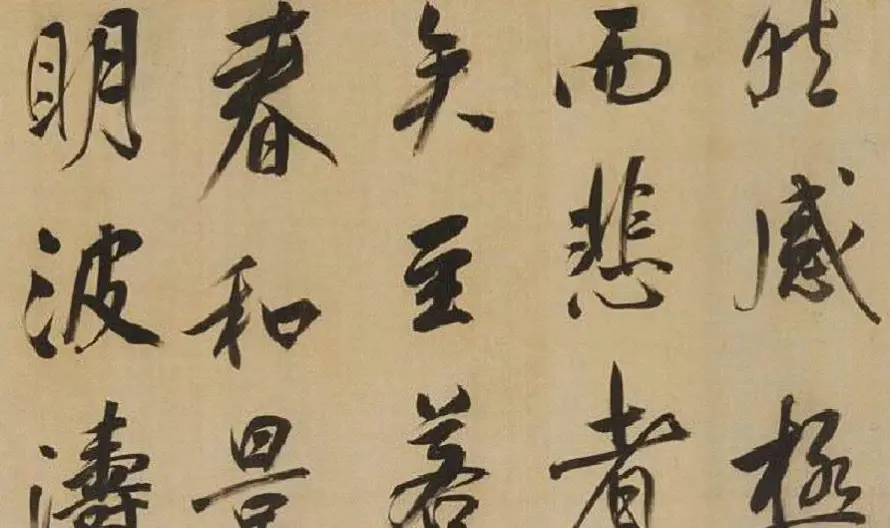 然感極
而悲者
矣至若
春和景
明波濤